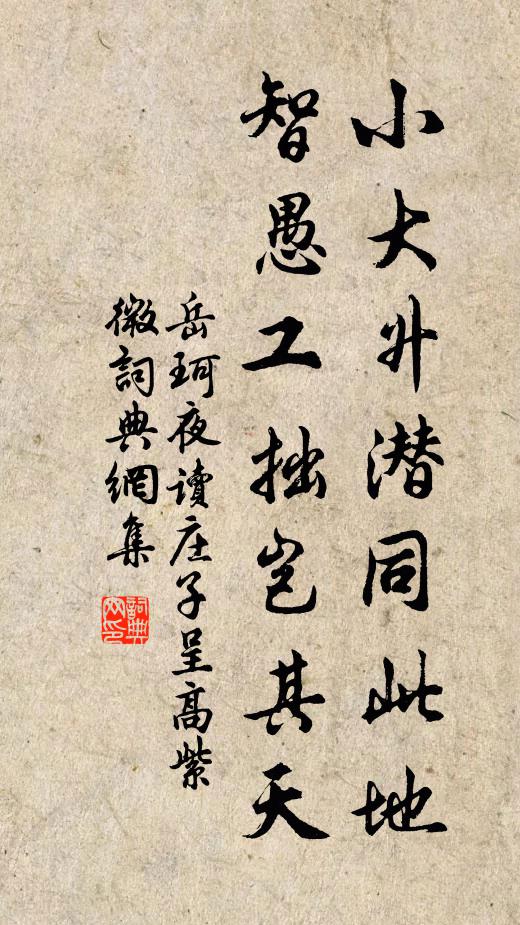 小大升潜同此地
智愚工拙岂其天
岳珂夜讀庄子呈高紫
微詞典網集
詞典
网印